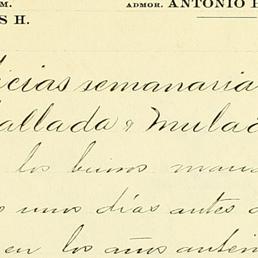 M. ADMOR. ANTONIO
S H.
icias semanaria
allada & Mulad
los buenos
s unos días antes
en los años anter